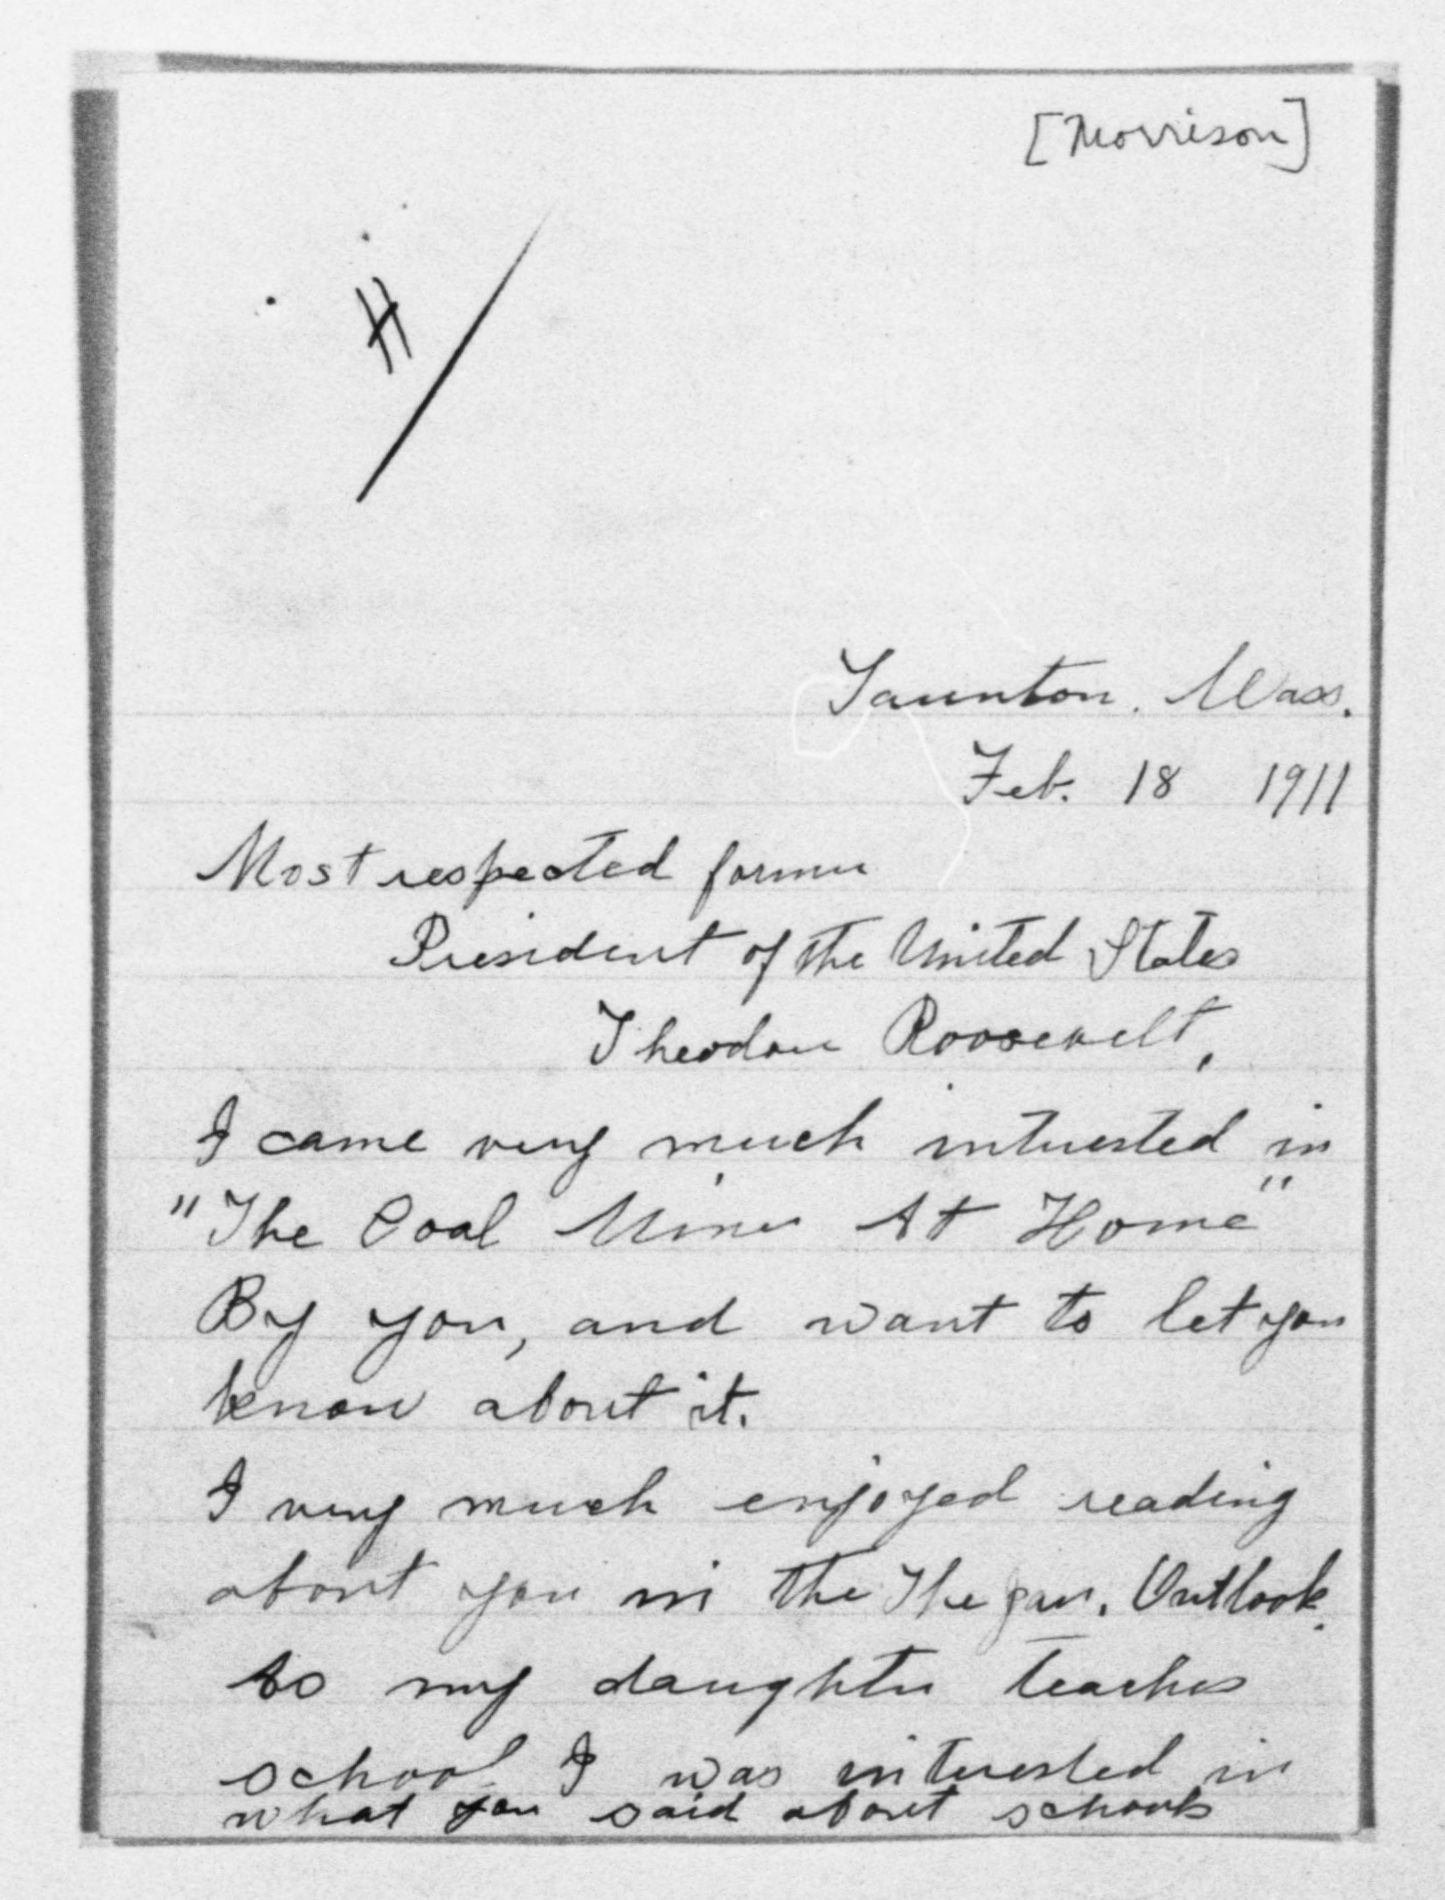 [Morrison]
H
Taunton. Mass.
Feb. 18 1911
Most respected former
President of the United States
Theodore Roosevelt,
I came very much interested in
"The Coal Miner At Home"
By you, and want to let you
know about it.
I very much enjoyed reading
about you in the The Jan. Outlook.
As my daughter teaches
school I was interested in
what you said about schools